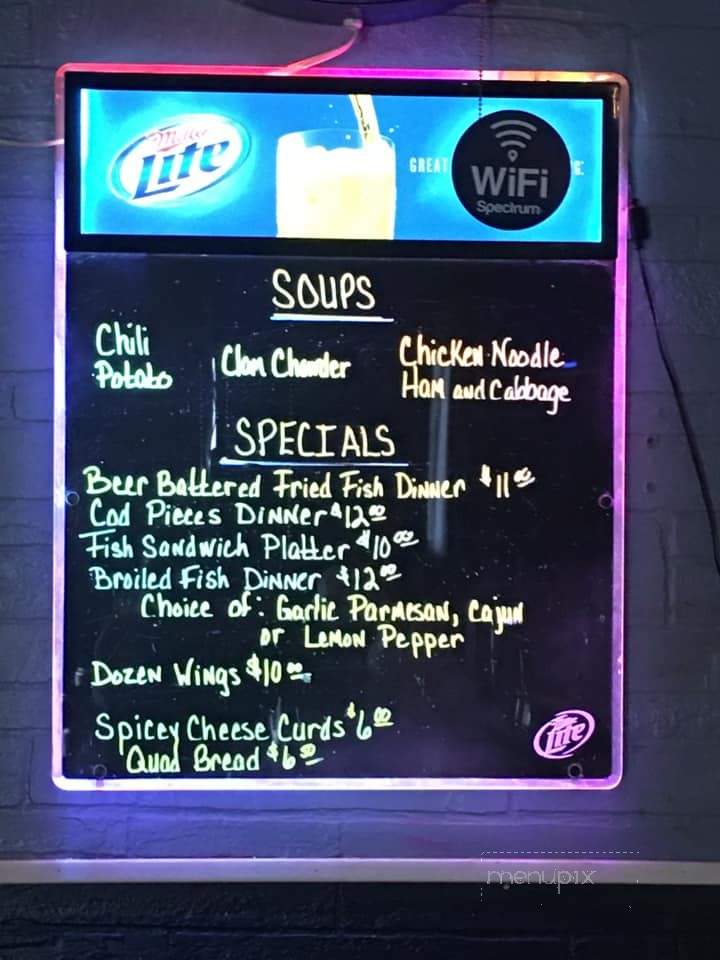 Miller
Lite
GREAT
WiFi
Spectrum
SOUPS
Chili
Potato
Clam Chowder
Chicken Noodle
Ham and Cabbage
SPECIALS
Beer Battered Fried Fish Dinner $11.00
Cod Pieces Dinner $12.00
Fish Sandwich Platter $10.00
Broiled Fish Dinner $12.00
Choice of: Garlic Parmesan, Cajun
or Lemon Pepper
Dozen Wings $10.00
Spicey Cheese Curds $6.00
Quad Bread $6.50
Lite
menupix